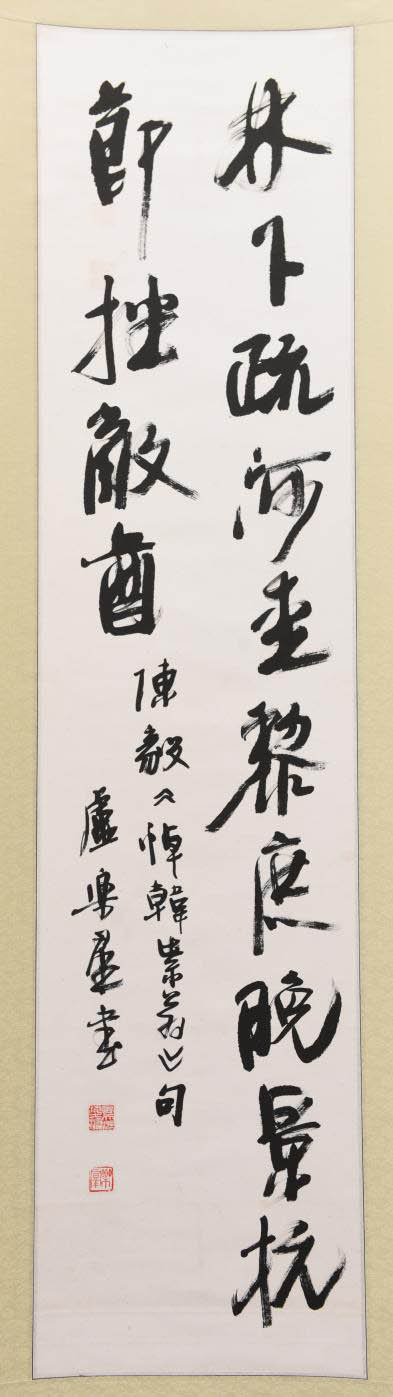 林下疏河惠黎庶晚景抗
節挫敵酋
陳毅《悼韓紫翁》句
盧樂羣書